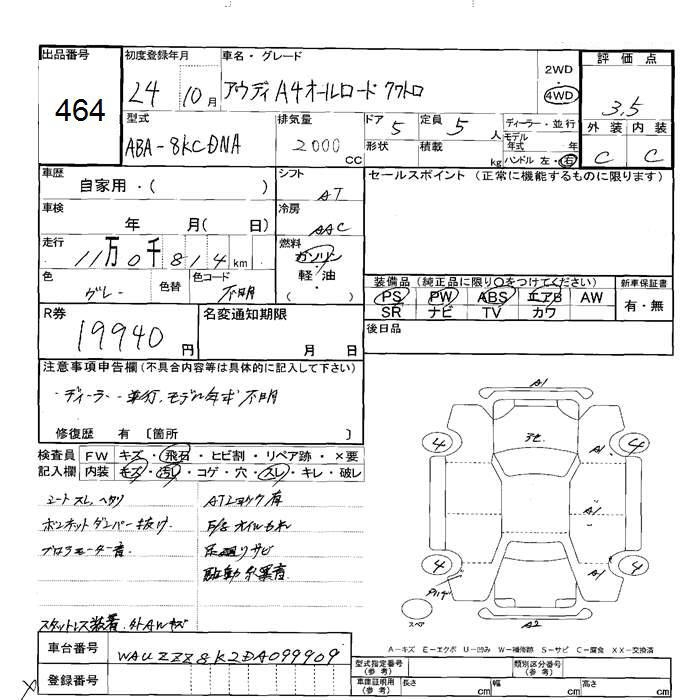 出品番号
464
初度登録年月
24 10月
車名・グレード
アウディ A4オールロード クワトロ
2WD
・
4WD
評価点
3.5
外装 内装
C C
型式
ABA-8KCDNA
排気量
2000
CC
ドア 5
定員 5 人
形状
積載 kg
ディーラー・並行
モデル
年式 年
ハンドル 左・右
車歴
自家用・( )
シフト
AT
セールスポイント (正常に機能するものに限ります)
車検
年 月( 日)
冷房
AAC
走行
11万0千814km
燃料
ガソリン
軽・油
( )
色
グレー
色替
色コード
不明
装備品 (純正品に限り○をつけてください)
PS PW ABS エアB AW
SR ナビ TV カワ
新車保証書
有・無
R券
19940円
名変通知期限
月 日
後日品
注意事項申告欄(不具合内容等は具体的に記入して下さい)
・ディーラー・並行、モデル年式不明
修復歴 有 〔箇所 〕
検査員
記入欄
FW キズ・飛石・ヒビ割・リペア跡・×要
内装 キズ・汚レ・コゲ・穴・スレ・キレ・破レ
シートスレ、ヘタリ
ATショック有
ボンネットダンパー抜け
E/g オイルもれ
ブロアモーター音
足廻りサビ
駆動系異音
スタットレス装着、外AWキズ
A1
4
4
A1
A1
4
4
A1
スペア
A2
A-キズ E-エクボ U-凹み W-補修跡 S-サビ C-腐食 XX-交換済
車台番号
WAUZZZ8K2DA099909
登録番号
型式指定番号
(参考)
類別区分番号
(参考)
車庫証明用
(参考)
長さ cm
幅 cm
高さ cm